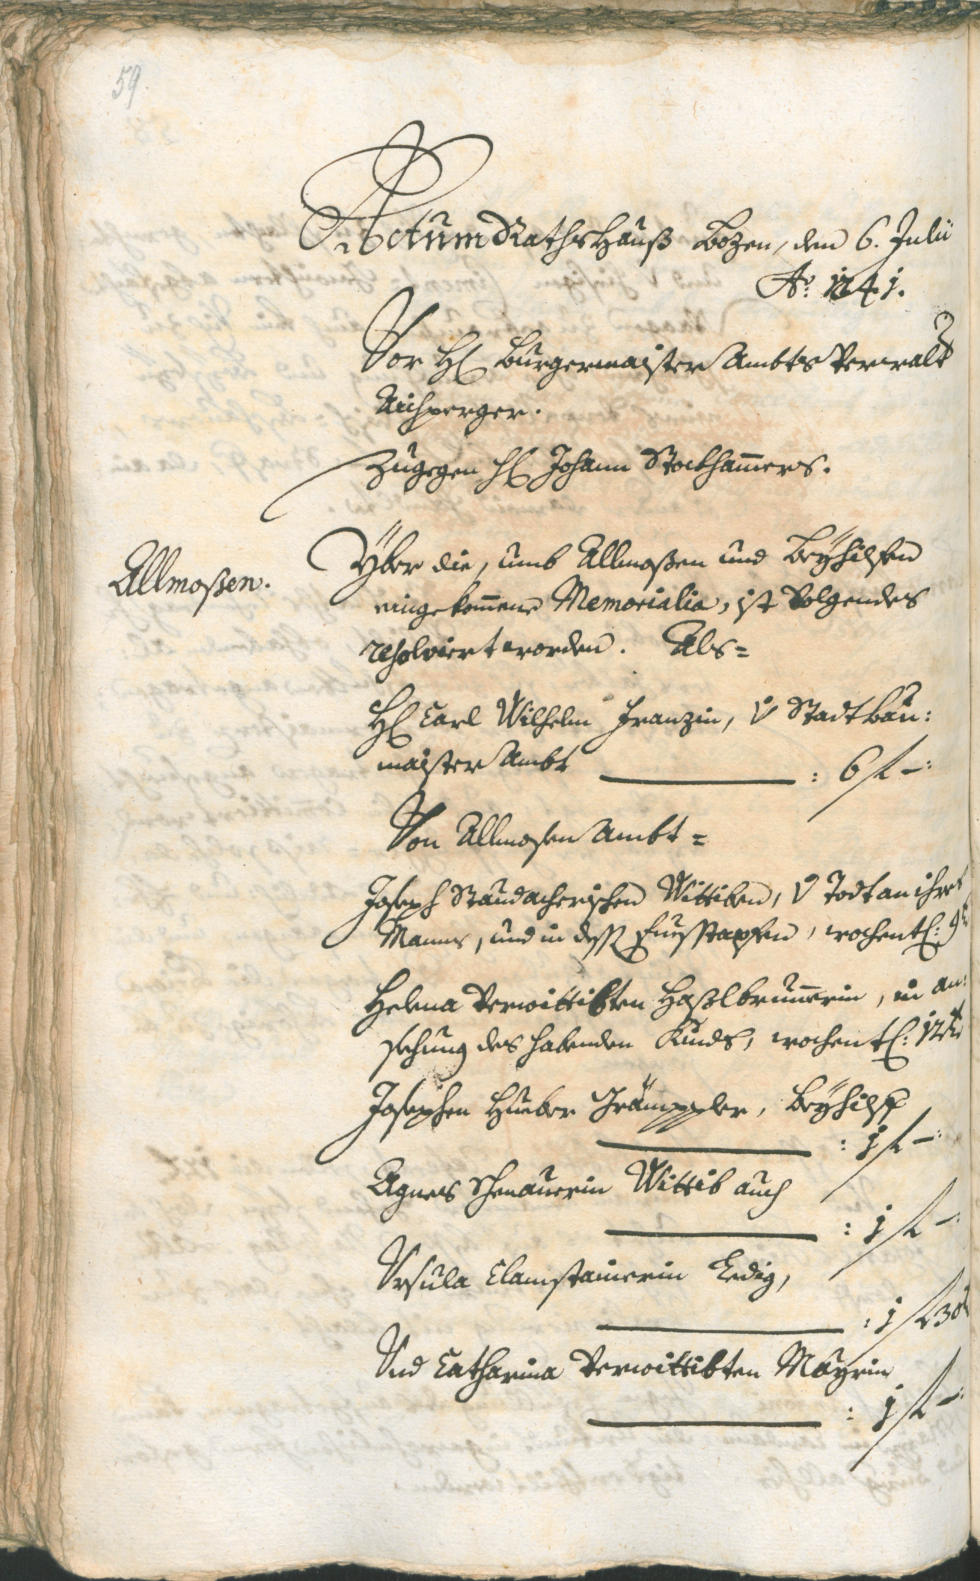 59
Actum Rathshauß Bozen, den 6. Julii
Ao: 1741.
Vor H: Burgermaister Ambts Verwalt
Aichperger.
Zugegen H: Johann Stockhamers.
Allmoßen.
Yber die, umb Allmoßen und Beyhilfen
eingekomene Memorialia, ist volgendes
resolviert worden. Als=
H: Carl Wilhelm Franzin, v Stadtbau:
maister Ambt : 6 f –:
Von Allmosen Ambt=
Joseph Staudacherischen Wittiben, v Todt an ihres
Manns, und in dess Fuesstapfen, wochentl: 9
Helena verwittibten Haslbrunerin, in an:
sehung des habenden Kinds, wochentl: 12 kr
Josephen Hueber Trämppler, Beyhilf
: 1 f –:
Agnes Schenauerin Wittib auch
: 1 f –:
Ursula Clamstainerin Ledig,
: 1 f 30
Und Catharina verwittibten Mayrin
: 1 f –: